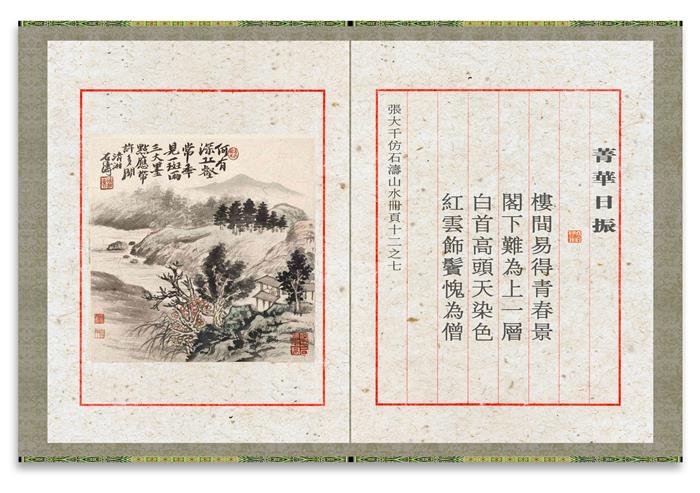 菁華日振
樓間易得青春景
閣下難為上一層
白首高頭天染色
紅雲飾鬢愧為僧
張大千仿石濤山水冊頁十二之七
何有
深丘壑
常奉
見一斑兩
三大里
點應帶
許多閒
清湘
石濤